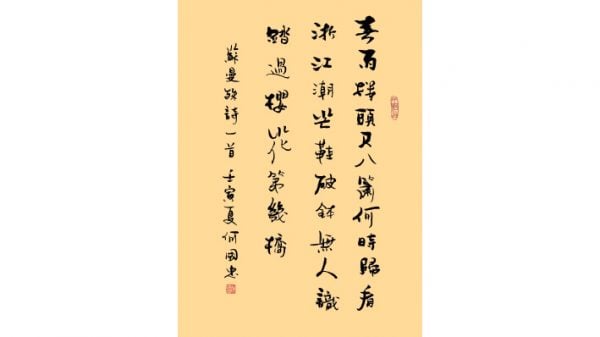 春雨樓頭尺八簫何時歸看
浙江潮芒鞋破鉢無人識
踏過櫻花第幾橋
蘇曼殊詩一首 壬寅夏何國忠